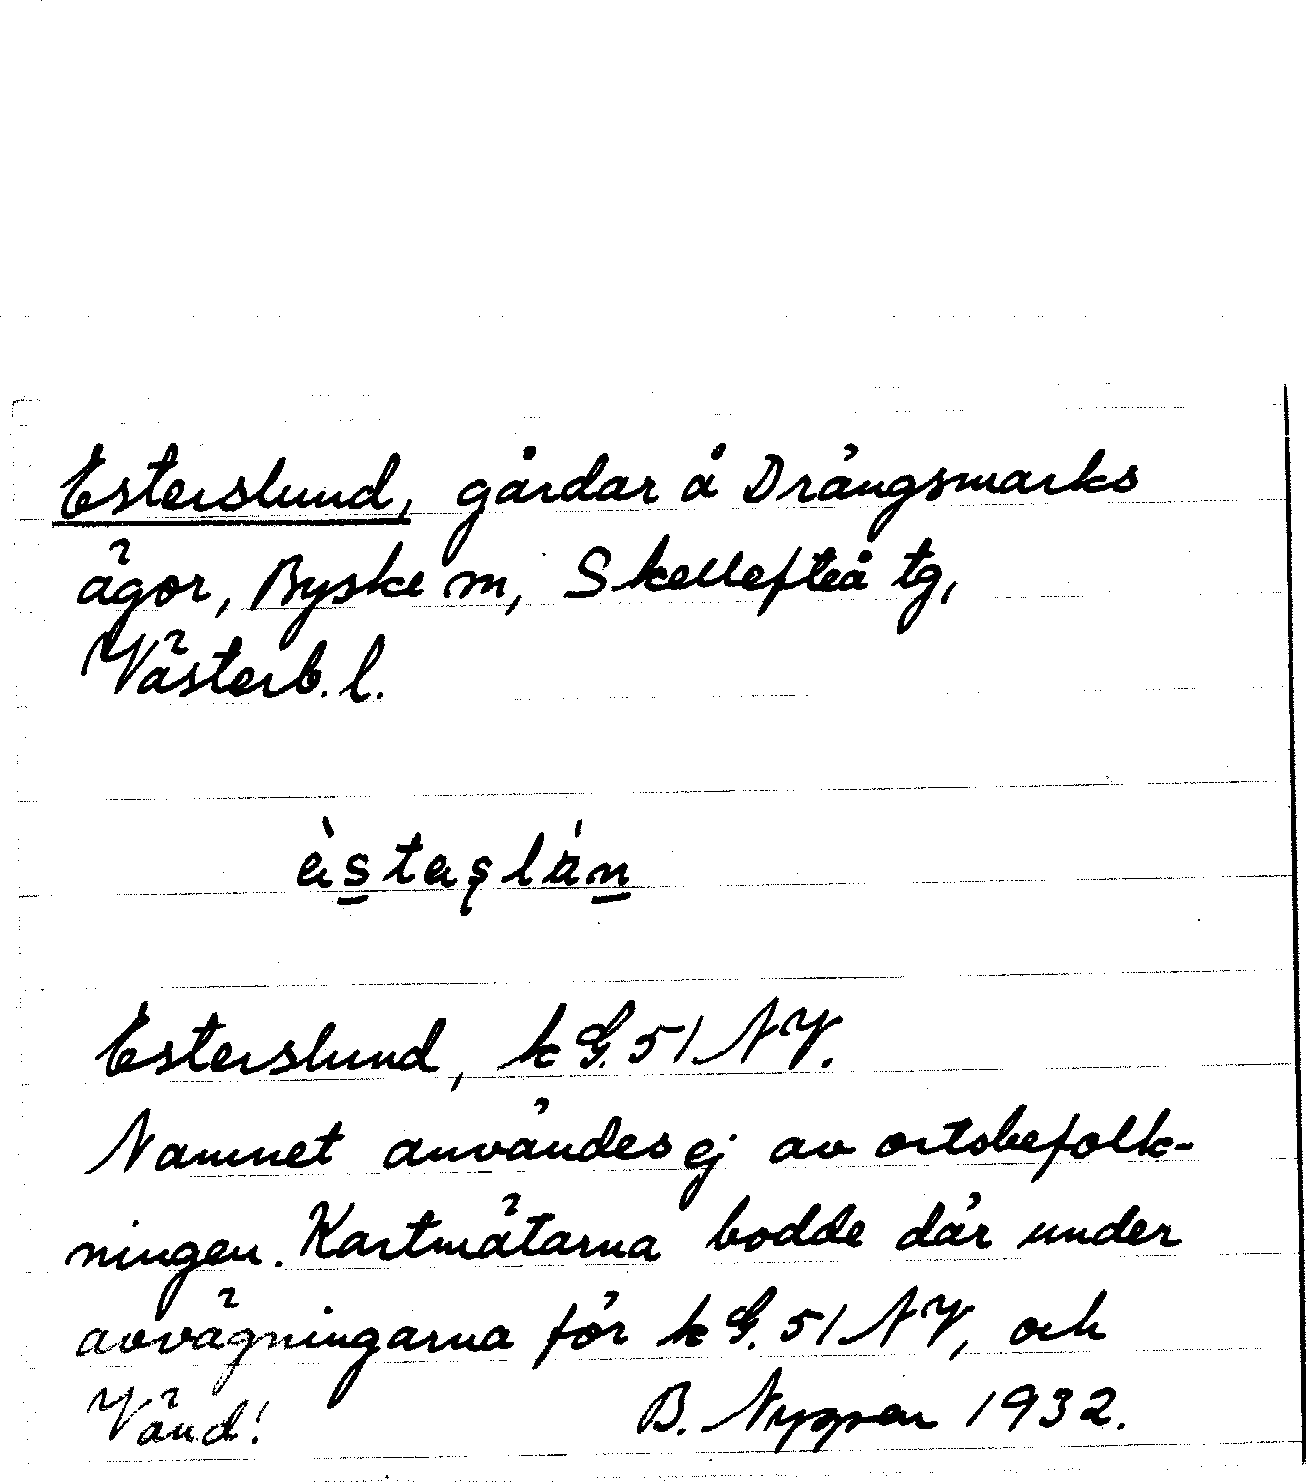 Esterslund, gårdar å Drängsmarks
ägor, Byske sn, Skellefteå tg,
Västerb. l.
èstaşlán
Esterslund, k G. 51 NV.
Namnet användes ej av ortsbefolk-
ningen. Kartmätarna bodde där under
avvägningarna för k G. 51 NV, och
Vänd! B. Nygren 1932.